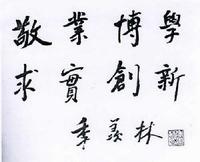 學新
博創
業實
敬求
季羡林